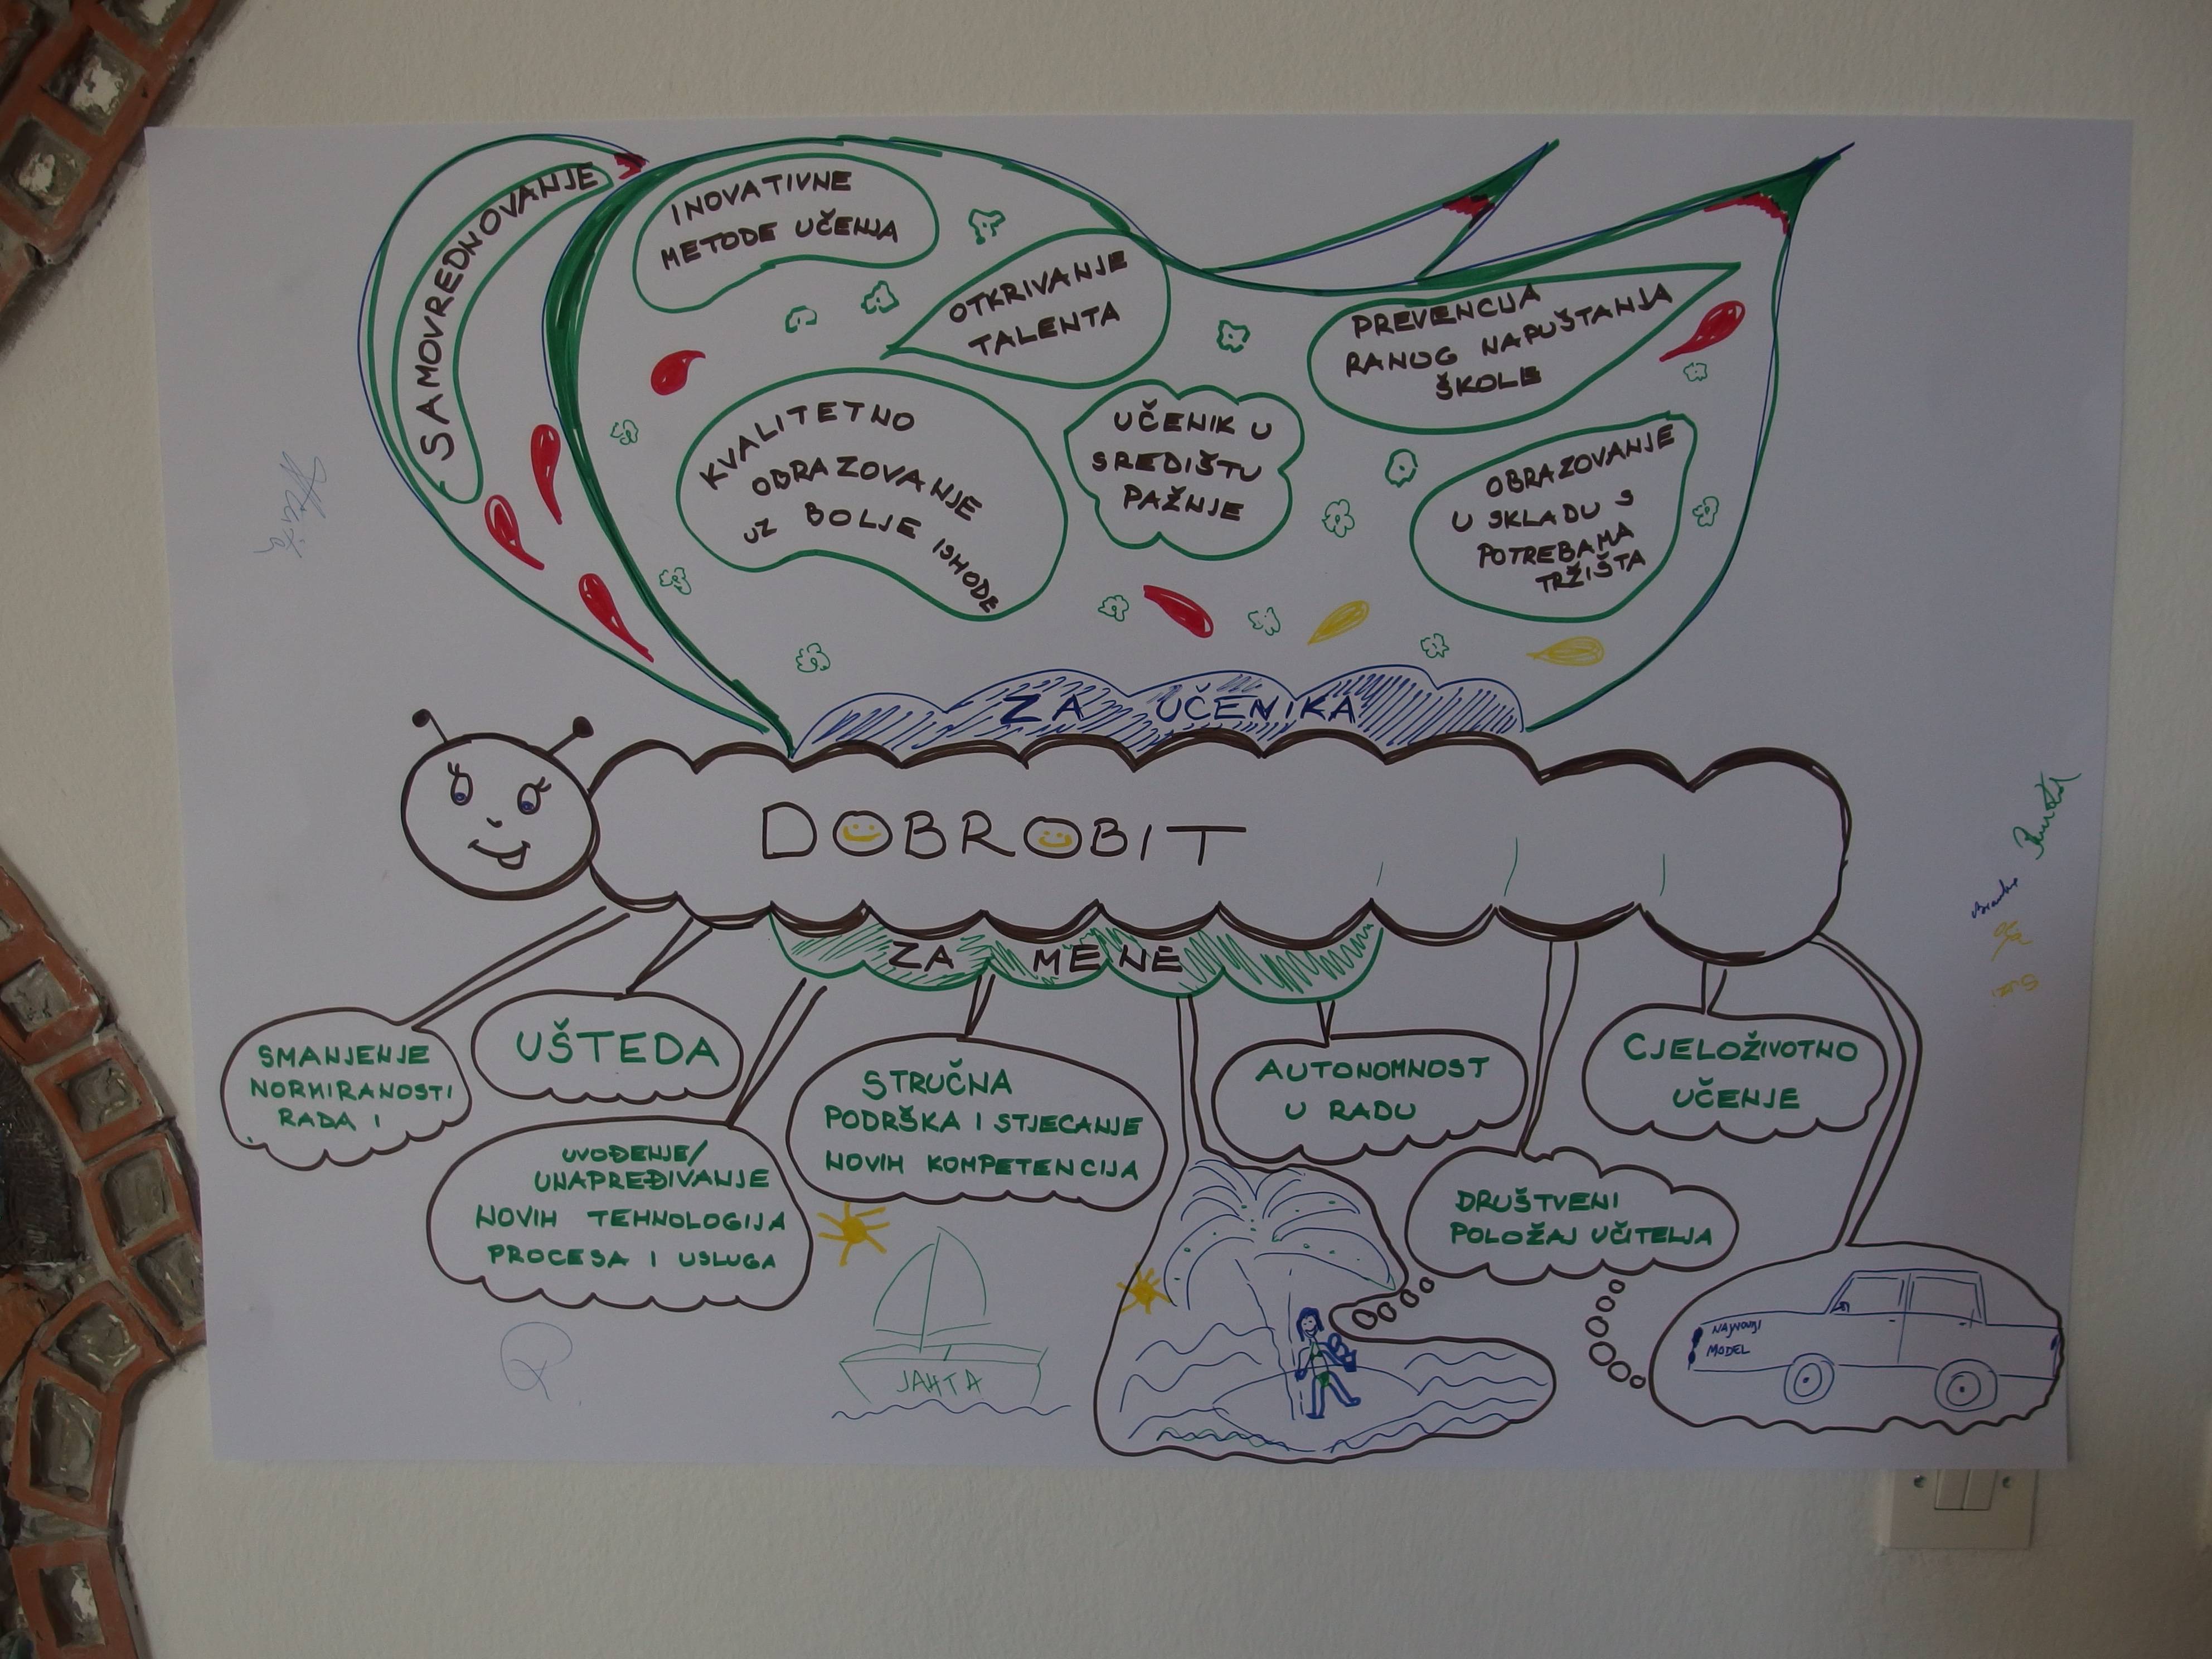 SAMOVREDNOVANJE
INOVATIVNE
METODE UČENJA
OTKRIVANJE
TALENTA
PREVENCIJA
RANOG NAPUŠTANJA
ŠKOLE
KVALITETNO
OBRAZOVANJE
UZ BOLJE ISHODE
UČENIK U
SREDIŠTU
PAŽNJE
OBRAZOVANJE
U SKLADU S
POTREBAMA
TRŽIŠTA
ZA UČENIKA
DOBROBIT
ZA MENE
SMANJENJE
NORMIRANOSTI
RADA I
UŠTEDA
UVOĐENJE/
UNAPREĐIVANJE
NOVIH TEHNOLOGIJA
PROCESA I USLUGA
STRUČNA
PODRŠKA I STJECANJE
NOVIH KOMPETENCIJA
AUTONOMNOST
U RADU
DRUŠTVENI
POLOŽAJ UČITELJA
CJELOŽIVOTNO
UČENJE
JAHTA
NAJNOVIJI
MODEL